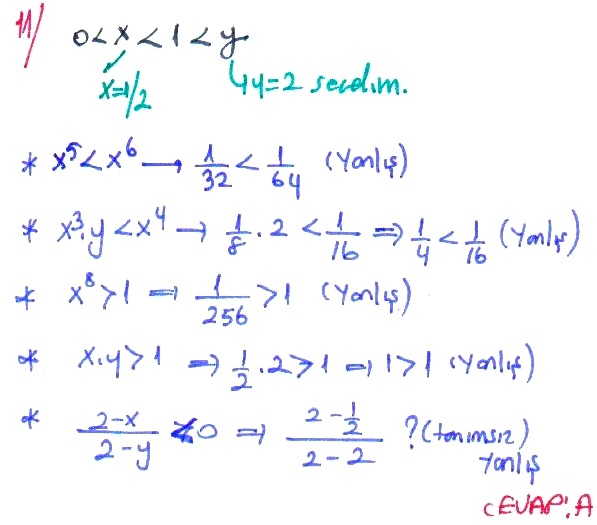 11/ 0<x<1<y
x=1/2 y=2 secdim.
* x⁵<x⁶ → 1/32 < 1/64 (Yanlış)
* x³.y<x⁴ → 1/8 . 2 < 1/16 ⇒ 1/4 < 1/16 (Yanlış)
* x⁸>1 ⇒ 1/256 >1 (Yanlış)
* x.y>1 ⇒ 1/2 . 2>1 ⇒ 1>1 (Yanlış)
* 2-x/2-y <0 ⇒ 2-1/2/2-2 ? (tanımsız)
Yanlış
CEVAP:A